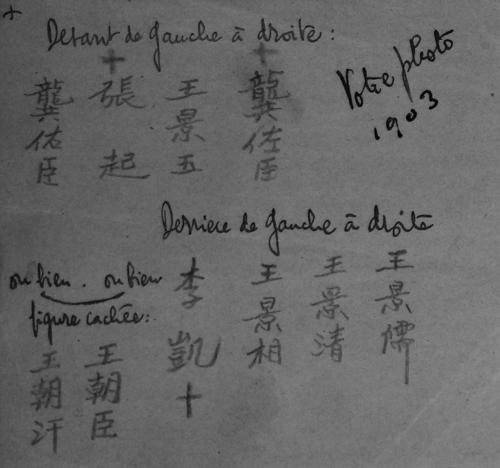 +
Devant de gauche à droite :
+ +
龔佑臣 張起 王景五 龔佐臣
Votre photo
1903
Derriere de gauche à droite
ou bien . ou bien
figure cachée :
王朝汗 王朝臣 李凱 王景相 王景清 王景儒
+